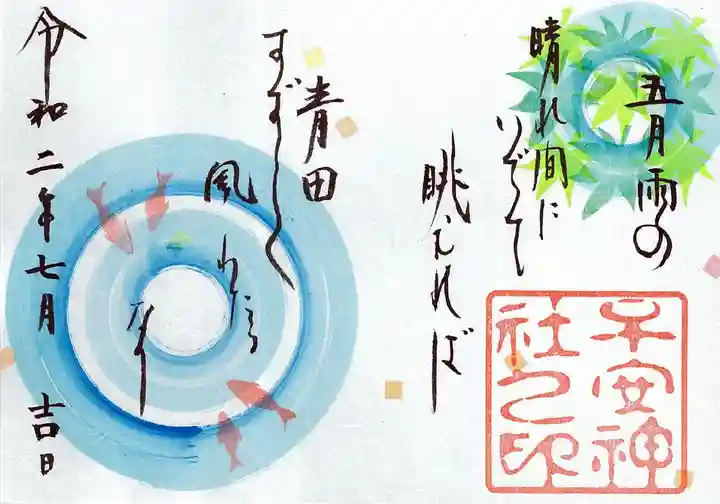 五月雨の
晴れ間に
いでて
眺むれば
青田
すずしく
風わたるなり
令和二年七月 吉日
子安神
社之印